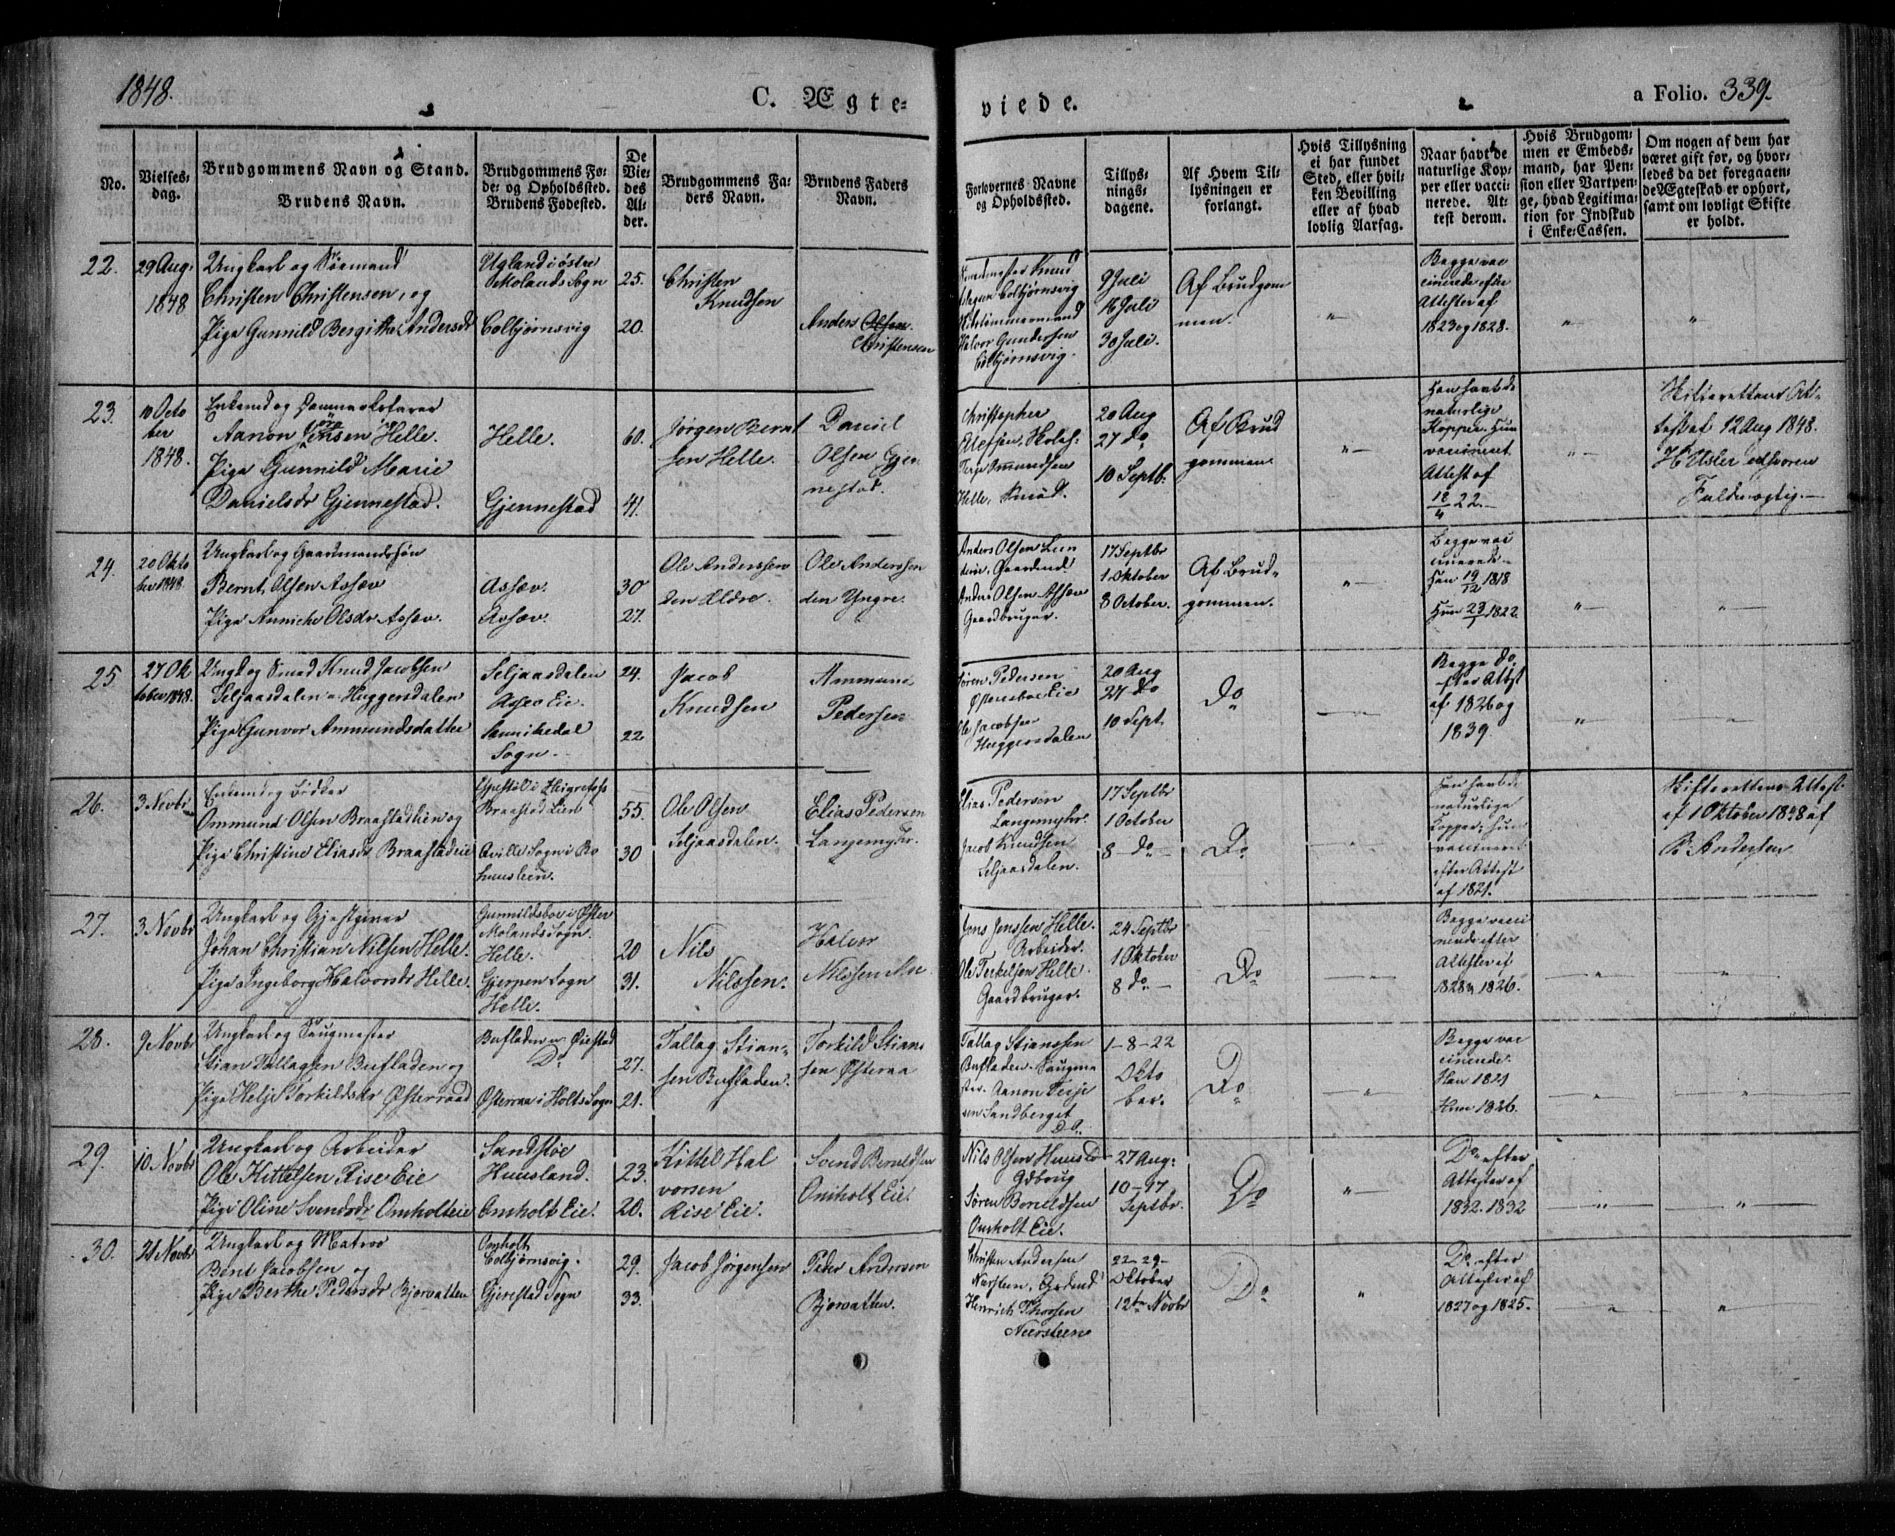 1848.
C. Ægte-
viede.
a Folio. 339.
No.
Vielses-
dag.
Brudgommens Navn og Stand.
Brudens Navn.
Brudgommens Fø-
de- og Opholdssted.
Brudens Fødested.
De
Vie-
des
Al-
der.
Brudgommens Fa-
ders Navn.
Brudens Faders
Navn.
Forlovernes Navne
og Opholdssted.
Tillys-
nings-
dagene.
Af Hvem Til-
lysningen er
forlangt.
Hvis Tillysning
ei har fundet
Sted, eller hvil-
ken Bevilling
eller af hvad
lovlig Aarsag.
Naar havt de
naturlige Kop-
per eller vacci-
nerede. At-
test derom.
Hvis Brudgom-
men er Embeds-
mand, har Pen-
sion eller Vartpen-
ge, hvad Legitima-
tion for Indskud
i Enke-Cassen.
Om nogen af dem har
været gift før, og hvor-
ledes da det foregaaen-
de Ægteskab er ophørt,
samt om lovligt Skifte
er holdt.
22.
29 Aug.
1848
Ungkarl og Sømand
Christen Christensen, og
Pige Gunnild Bergithe Andersdr
Ugland i østre
Molands Sogn
Colbjørnsvig
25.
20.
Christen
Knudsen
Anders Olsen.
Christensen
Knud
Colbjørnsvig
Halvor Gundersen
Colbjørnsvig.
9 Juli
16 Juli
30 Juli.
Af Brudgom
men.
Begge vac
cinerede efter
Attester af
1823 og 1828.
23.
10 Octo
ber
1848.
Enkemd og
Aanon Jensen Helle.
Pige Gunnild Marie
Danielsdr Gjennestad.
Helle.
Gjennestad
60.
41.
Jørgen Bernt
sen Helle.
Daniel
Olsen Gjen
nestad.
Christopher
Olefsen
Terje Ommundsen
Helle, Smed.
20 Aug
27 do
10 Septb.
Af Brud
gommen
Han havt de
naturlige
Kopper. Hun
vaccineret
Attest af
12/4 22.
Skifterettens At-
test af 12 Aug 1848.
edsvoren
Fuldmægtig.
24.
20 Okto
ber 1848.
Ungkarl og Gaardmandssøn
Bernt Olsen Assev
Pige Anniche Olsdr Assev.
Assev.
Assev.
30
27.
Ole Anderssen
den Ældre.
Ole Anderssen
den Yngre.
Anders Olsen Lun
derød, Gaardmd.
Anders Olsen Assev
Gaardbruger.
17 Septbr
1. Oktober
8 October.
Af Brud-
gommen.
Begge vac
cinerede
Han 19/12 1818
Hun 23/7 1822
25
27 Ok
tober 1848.
Ungk og Smed Knud Jacobsen
Seljaasdalen a. Huggersdalen
Pige Gunvor Ammundsdatter
Seljaasdalen
Assev Eie.
Sannikedal
Sogn.
24.
22
Jacob
Knudsen
Ammund
Pedersen
Søren Pedersen
Østensboe Eie
Ole Jacobsen
Huggersdalen
20 Aug
27 do
10 Sept.
Do
Begge do
efter Attest
af 1826 og
1839
26.
3 Novbr
Enkemd og Bødker
Ommund Olsen Braastad Eie og
Pige Christine Eliasdr Braastad Eie
Braastad Eie
Aville Sogn i Bo
huuslen.
55.
30
Ole Olsen
Seljaasdalen.
Elias Pedersen
Langemyhr.
Elias Pedersen
Langemyhr.
Jacob Knudsen
Seljaasdalen.
17 Septbr
1 October
8 do
Do
Han havt de
naturlige
Kopper; hun
vaccineret
efter Attest
af 1821.
Skifterettens Attest
af 1 Oktober 1848 af
B. Andersen
27.
3 Novbr
Ungkarl og Gjestgiver
Johan Christian Nilsen Helle.
Pige Ingeborg Halvorsdr Helle.
Gunnildsboe i Øster
Molands Sogn.
Helle.
Gjerpen Sogn
Helle.
20
31.
Nils
Nilssen.
Halvor
Nilssen Moe
Jens Jenssen Helle.
Arbeider.
Ole Terkelsen Helle.
Gaardbruger.
24 Septbr
1 Oktober
8 do
Do
Begge vacci
nerede efter
Attester af
1828 og 1826.
28.
9 Novbr
Ungkarl og Saugmester
Stian Tallagsen Bufladen og
Pige Helje Torkildsdr Østerraad
Bufladen i Øiestad
Do
Østeraa i Holts Sogn
27.
21.
Tallag Stian-
sen Bufladen.
Torkild Stian
sen Østeraa
Tallag Stianssen
Bufladen. Saugme
ster. Aanon Terje
sen Sandberget
do.
1-8-22
Okto
ber.
Do
Begge vac
cinerede.
Han 1821
Hun 1826.
29.
10 Novbr
Ungkarl og Arbeider
Ole Kittelsen Rise Eie
Pige Oline Svendsdr Omholt Eie
Sandstøe
Huusland.
Omholt Eie.
23.
20.
Kittel Hal
vorsen
Rise Eie.
Svend Beruldsen
Omholt Eie.
Nils Olsen
Gdbrug
Søren Boruldsen
Omholt Eie.
27 Aug.
10-17
Septbr.
Do
Do efter
Attester af
1832. 1832
30.
21 Novbr
Ungkarl og Matros
Bent Jacobsen og
Pige Berthe Pedersdr Bjorvatten
Omholt
Colbjørnsvig.
Gjerestad Sogn
29.
33.
Jacob Jørgensen
Peder Andersen
Bjorvatten.
Christen Andersen
Neersteen, Grdmd
Henrich Thorsen
Neersteen
22-29-
Oktober
12te Novbr
Do
Do efter
Attester af
1827 og 1825.